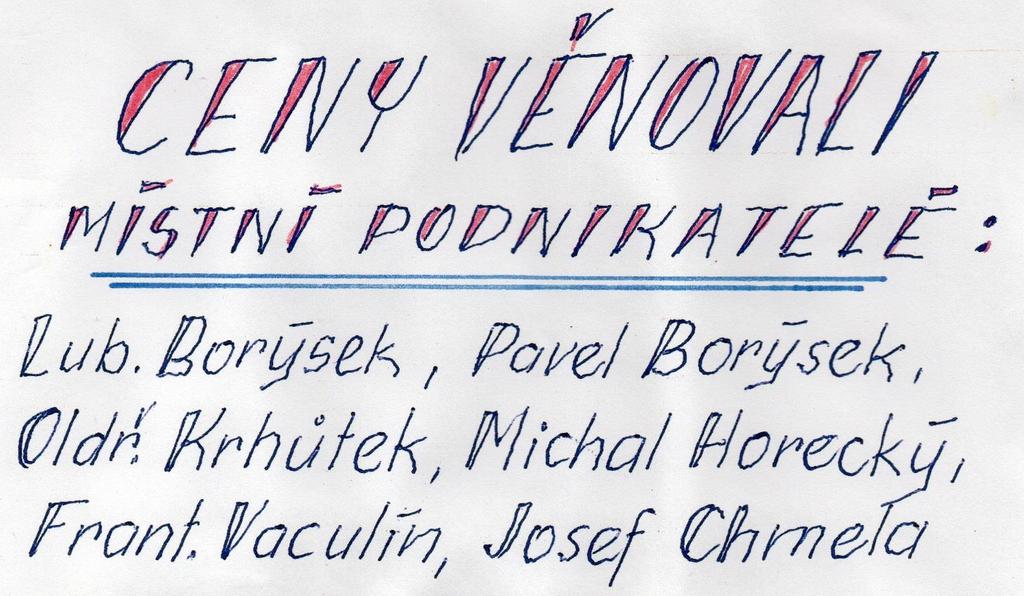 CENY VĚNOVALI
MÍSTNÍ PODNIKATELÉ :
Lub. Borýsek, Pavel Borýsek,
Oldř. Krhůtek, Michal Horecký,
Frant. Vaculín, Josef Chmela